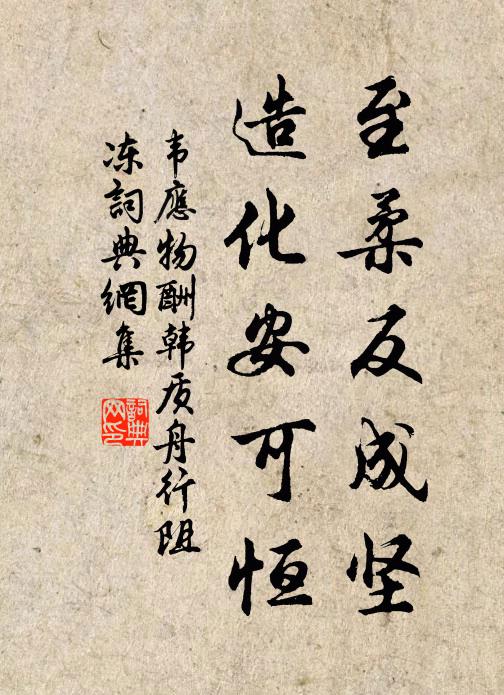 至柔反成坚
造化安可恒
韦應物酬韩质舟行阻
冻詞典網集
詞典
网印